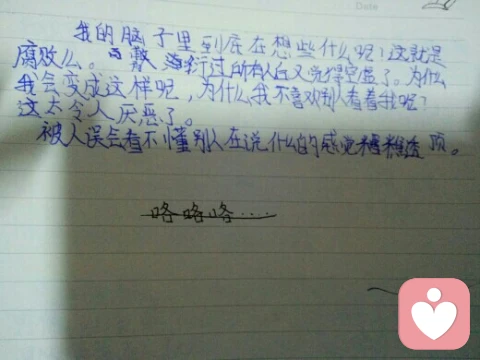 我的脑子里到底在想些什么呢!这就是
腐败么。敷衍过所有人后又觉得空虚了。为什么
我会变成这样呢,为什么我不喜欢别人看着我呢?
这太令人厌恶了。
被人误会看不懂别人在说什么的感觉糟糕透顶。
咯咯咯····
Date